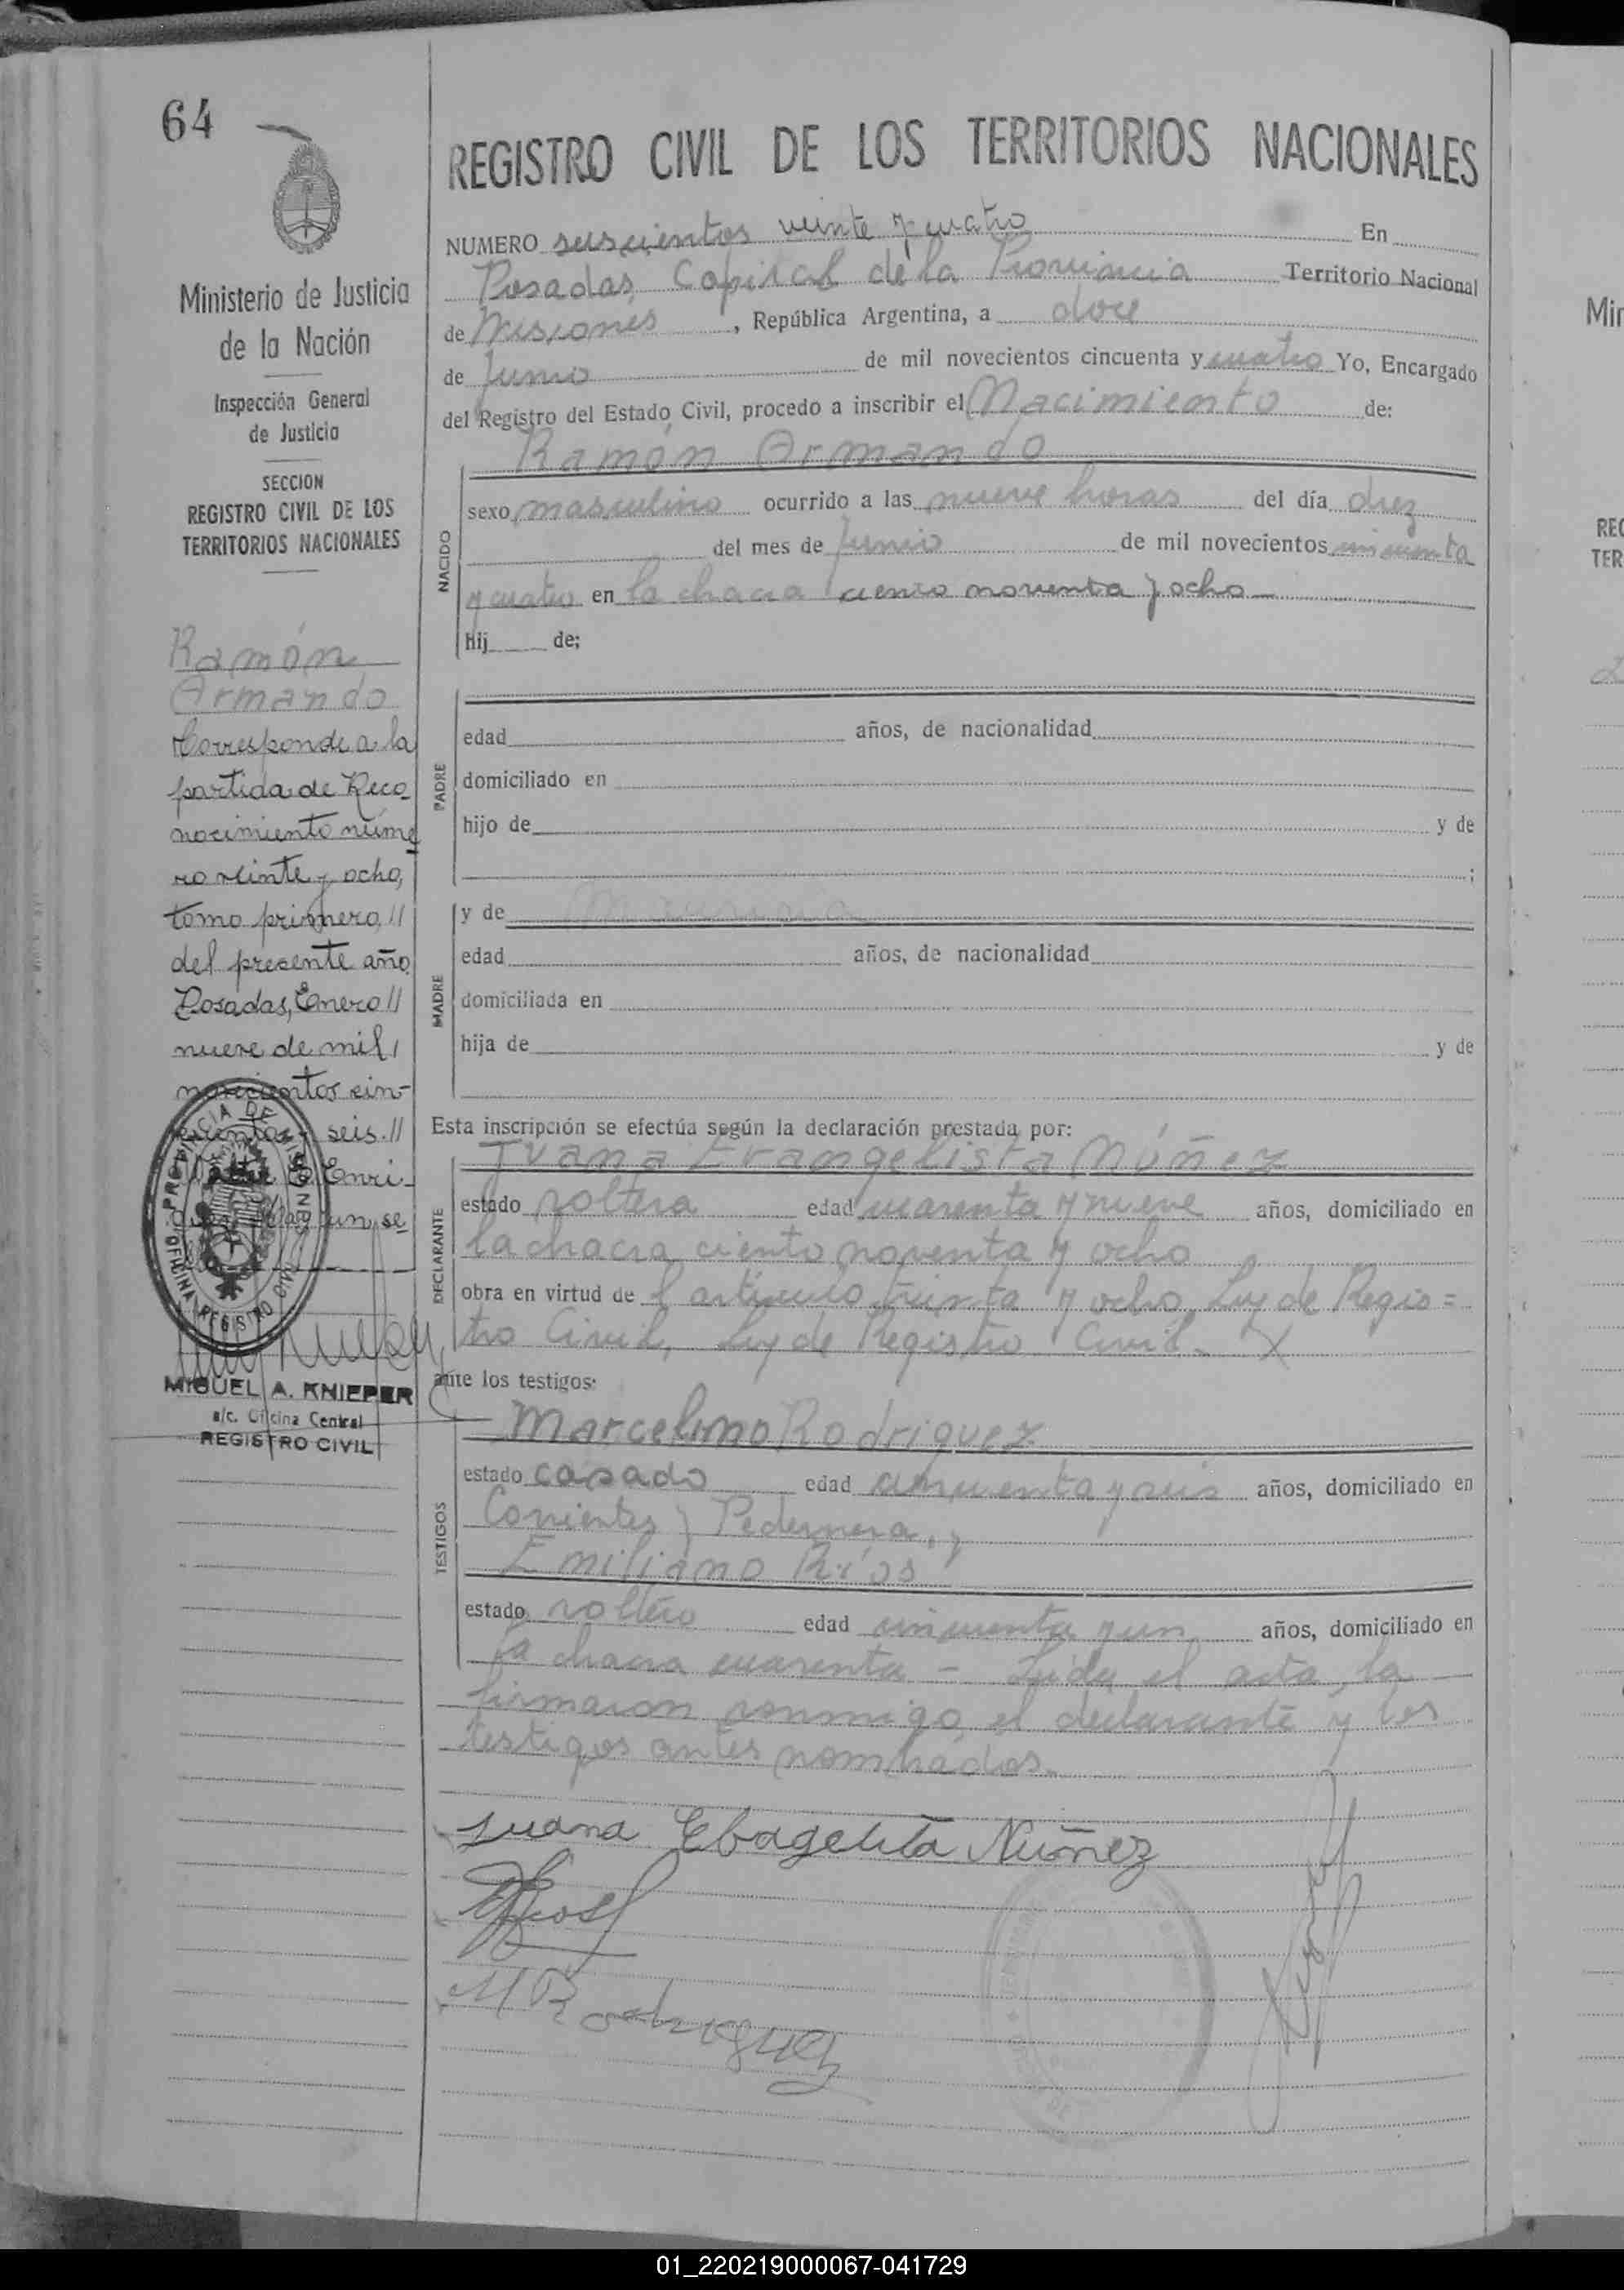 64
REGISTRO CIVIL DE LOS TERRITORIOS NACIONALES
Ministerio de Justicia
de la Nación
Inspección General
de Justicia
SECCION
REGISTRO CIVIL DE LOS
TERRITORIOS NACIONALES
Ramón
Armando
Corresponde a la
partida de Reco_
nocimiento núme_
ro veinte y ocho,
tomo primero, //
del presente año
Posadas, Enero //
nueve de mil
novecientos cin-
cuenta y seis. //
Enri_
un se
PROVINCIA DE MISIONES
OFICINA REGISTRO CIVIL
MIGUEL A. KNIEPER
a/c. Oficina Central
REGISTRO CIVIL
NUMERO seiscientos veinte y cuatro En
Posadas, Capital de la Provincia Territorio Nacional
de Misiones, República Argentina, a doce
de Junio de mil novecientos cincuenta y cuatro Yo, Encargado
del Registro del Estado Civil, procedo a inscribir el Nacimiento de:
Ramón Armando
NACIDO
sexo masculino ocurrido a las nueve horas del día diez
del mes de Junio de mil novecientos cincuenta
y cuatro en la chacra ciento noventa y ocho
hij de;
PADRE
edad años, de nacionalidad
domiciliado en
hijo de y de
;
MADRE
y de
edad años, de nacionalidad
domiciliada en
hija de y de
Esta inscripción se efectúa según la declaración prestada por:
Juana Evangelista Núñez
DECLARANTE
estado soltera edad cuarenta y nueve años, domiciliado en
la chacra ciento noventa y ocho
obra en virtud de l artículo treinta y ocho, Ley de Regis=
tro Civil, Ley de Registro Civil. X
ante los testigos:
Marcelino Rodriguez
TESTIGOS
estado casado edad cincuenta y seis años, domiciliado en
Corrientes y Pedernera,,
Emiliano Ríos
estado soltero edad cincuenta y un años, domiciliado en
la chacra cuarenta - Leída el acta, la
firmaron conmigo el declarante y los
testigos antes nombrados.
Juana Ebagelita Nuñez
ERios
M Rodriguez
Min
REG
TER
01_220219000067-041729